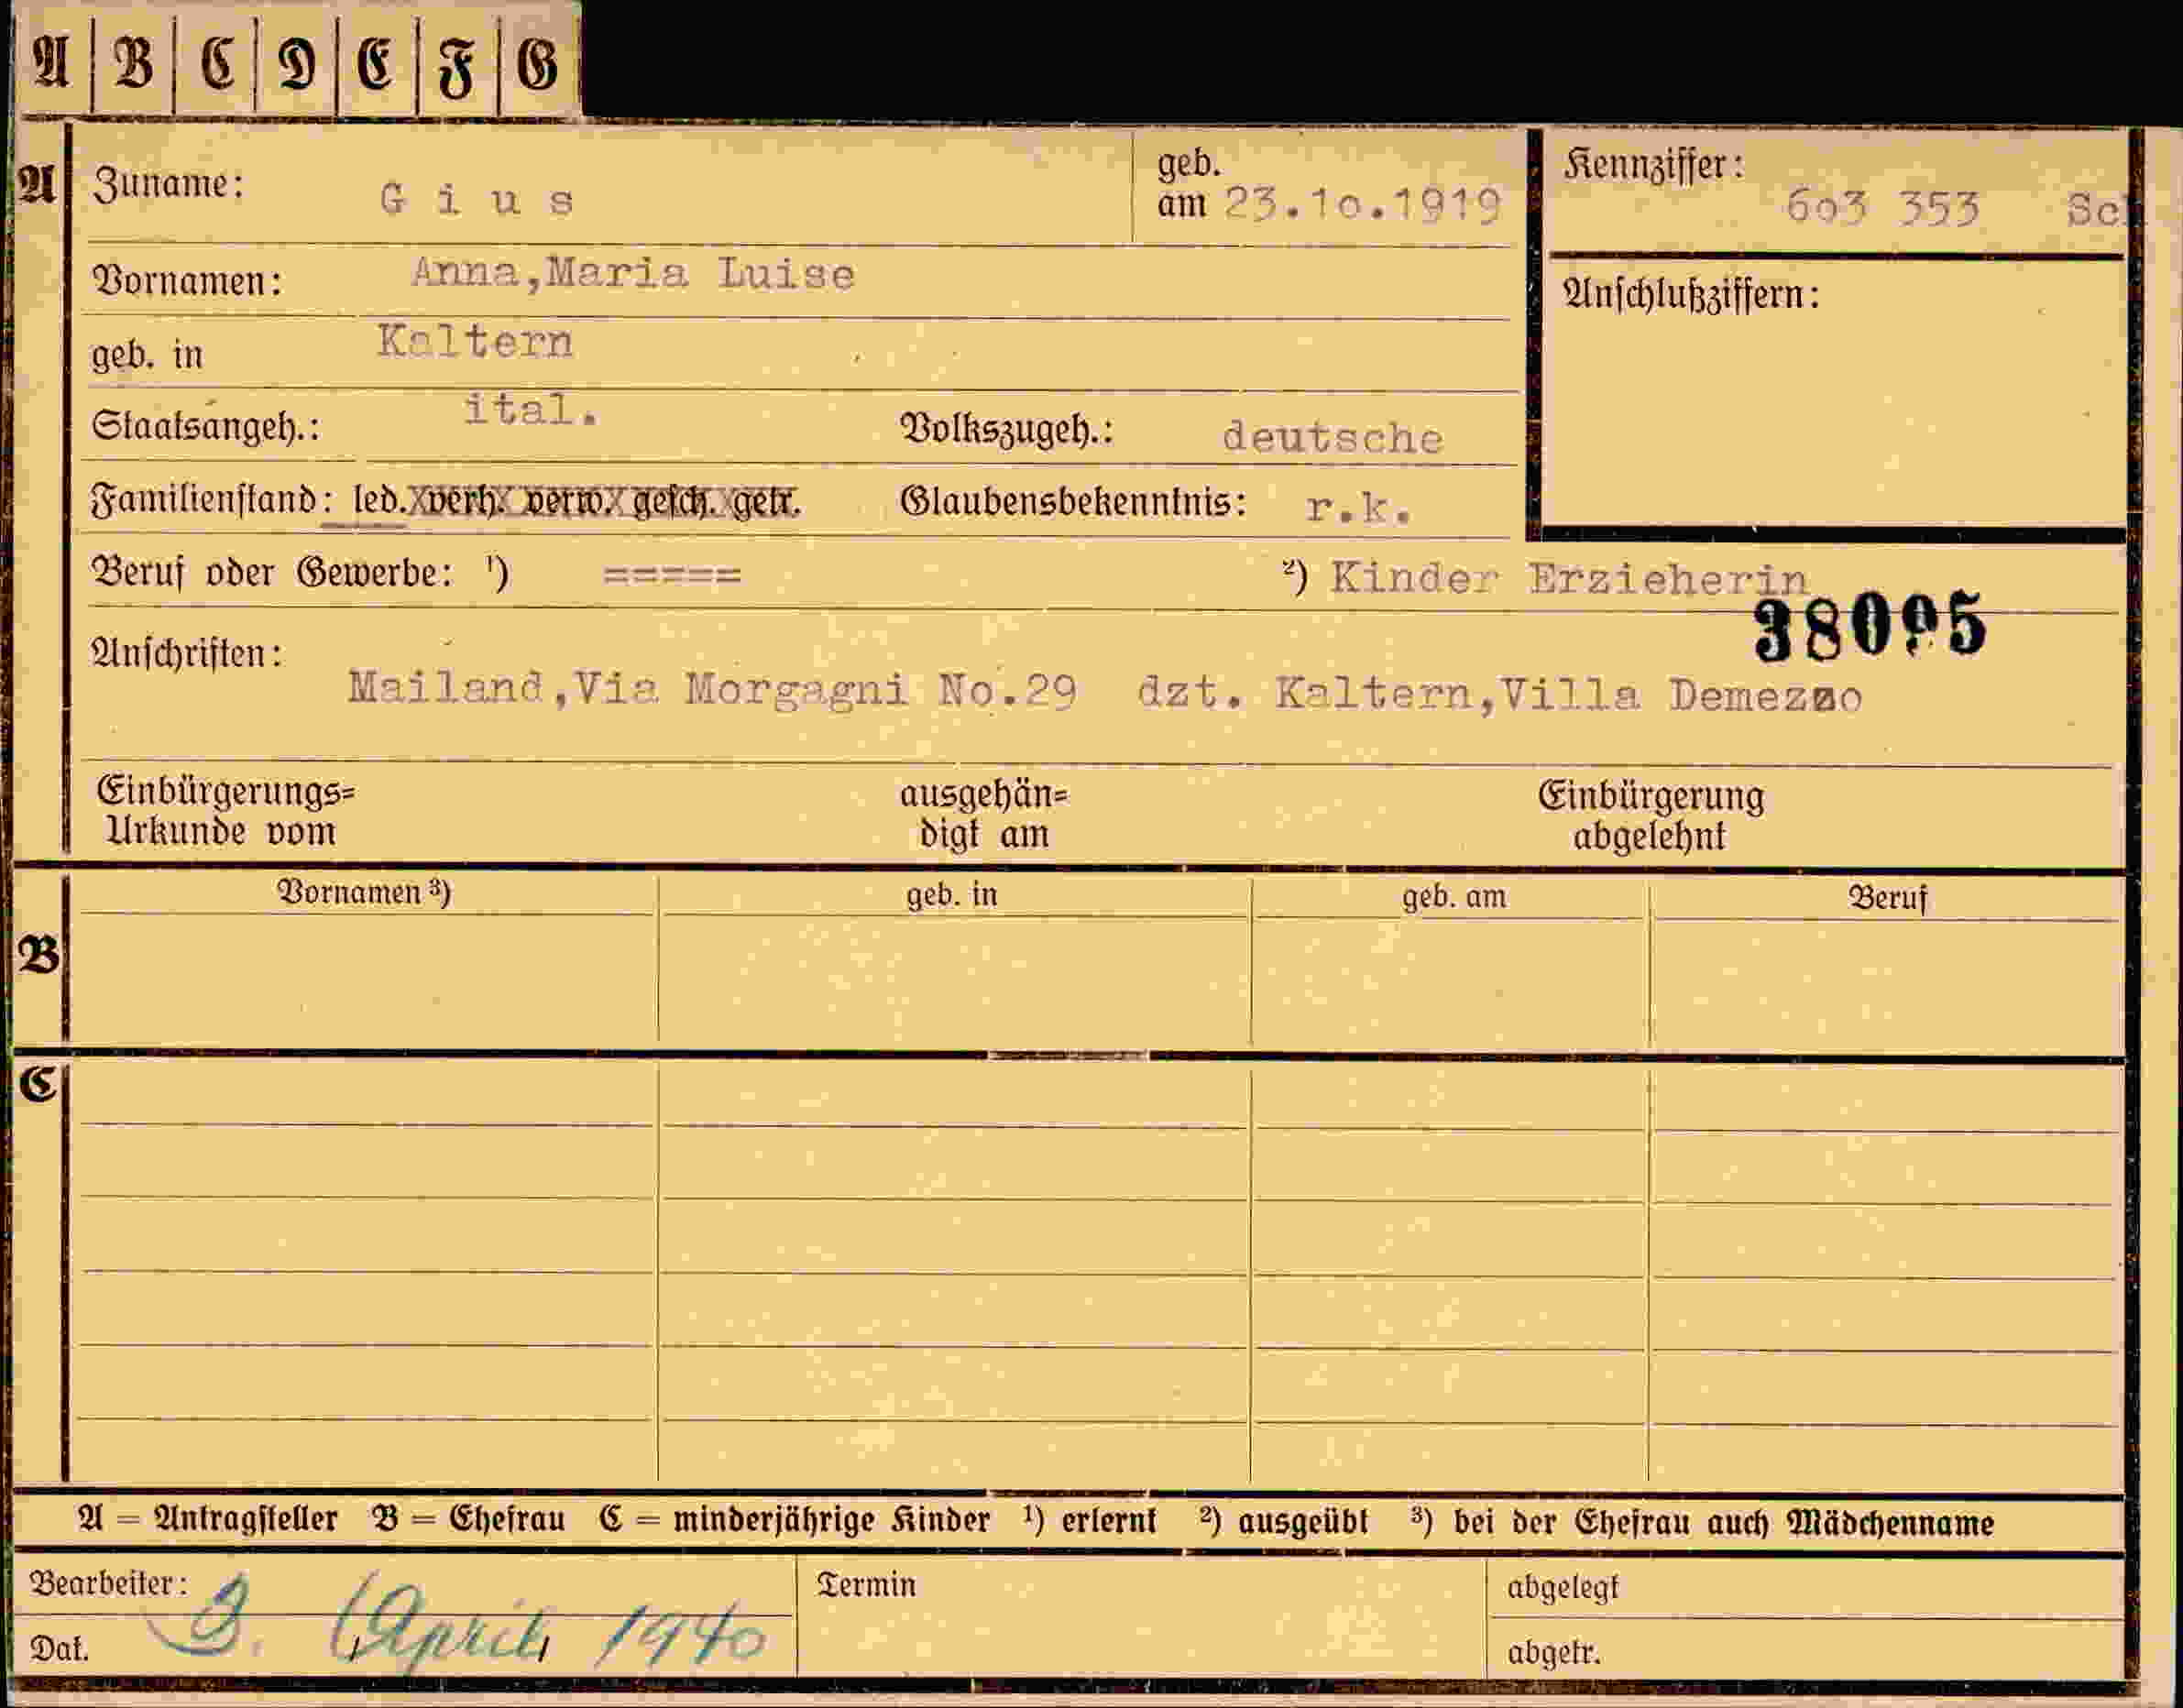 A B C D E F G
A Zuname: Gius geb. am 23.1o.1919
Kennziffer: 6o3 353 Sch
Vornamen: Anna,Maria Luise
Anschlußziffern:
geb. in Kaltern
Staatsangeh.: ital. Volkszugeh.: deutsche
Familienstand: led. verh. verw. gesch. getr. Glaubensbekenntnis: r.k.
Beruf oder Gewerbe: ¹) ===== ²) Kinder Erzieherin
38095
Anschriften:
Mailand,Via Morgagni No.29 dzt. Kaltern,Villa Demezzo
Einbürgerungs= ausgehän= Einbürgerung
Urkunde vom digt am abgelehnt
Vornamen ³) geb. in geb. am Beruf
B
C
A = Antragsteller B = Ehefrau C = minderjährige Kinder ¹) erlernt ²) ausgeübt ³) bei der Ehefrau auch Mädchenname
Bearbeiter: Termin abgelegt
3. April 1940
Dat. abgetr.